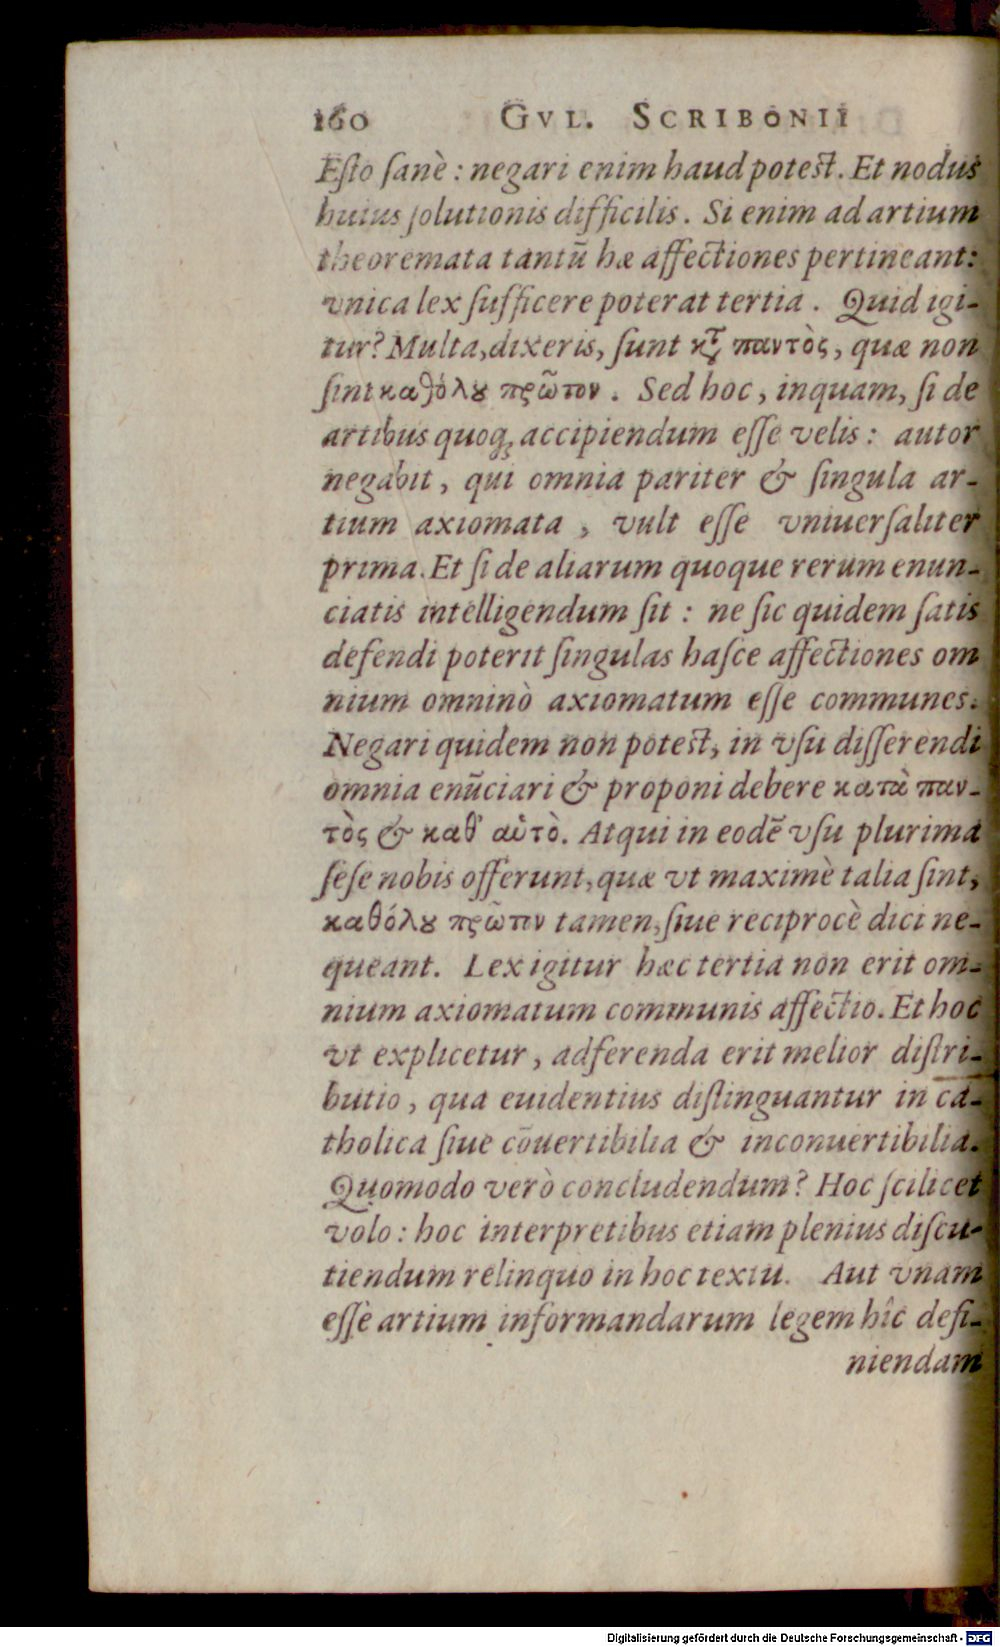 160 GVL. SCRIBONII
Eſto ſanè : negari enim haud poteſt. Et nodus
huius ſolutionis difficilis. Si enim ad artium
theoremata tantũ hæ affectiones pertineant:
vnica lex ſufficere poterat tertia. Quid igi-
tur? Multa, dixeris, ſunt κτ̀ παντὸς, quæ non
ſint καθόλȣ πρῶτον. Sed hoc, inquam, ſi de
artibus quoq; accipiendum eſſe velis: autor
negabit, qui omnia pariter & ſingula ar-
tium axiomata, vult eſſe vniuerſaliter
prima. Et ſi de aliarum quoque rerum enun-
ciatis intelligendum ſit : ne ſic quidem ſatis
defendi poterit ſingulas haſce affectiones om
nium omninò axiomatum eſſe communes.
Negari quidem non poteſt, in vſu diſſerendi
omnia enũciari & proponi debere κατὰ παν-
τὸς & καθ' αὑτὸ. Atqui in eodẽ vſu plurima
ſeſe nobis offerunt, quæ vt maximè talia ſint,
καθόλȣ πρῶτον tamen, ſiue reciprocè dici ne-
queant. Lex igitur hæc tertia non erit om-
nium axiomatum communis affectio. Et hoc
vt explicetur, adferenda erit melior diſtri-
butio, qua euidentius diſtinguantur in ca-
tholica ſiue cõuertibilia & inconuertibilia.
Quomodo verò concludendum? Hoc ſcilicet
volo : hoc interpretibus etiam plenius diſcu-
tiendum relinquo in hoc textu. Aut vnam
eſſe artium informandarum legem hîc defi-
niendam
Digitalisierung gefördert durch die Deutsche Forschungsgemeinschaft - DFG